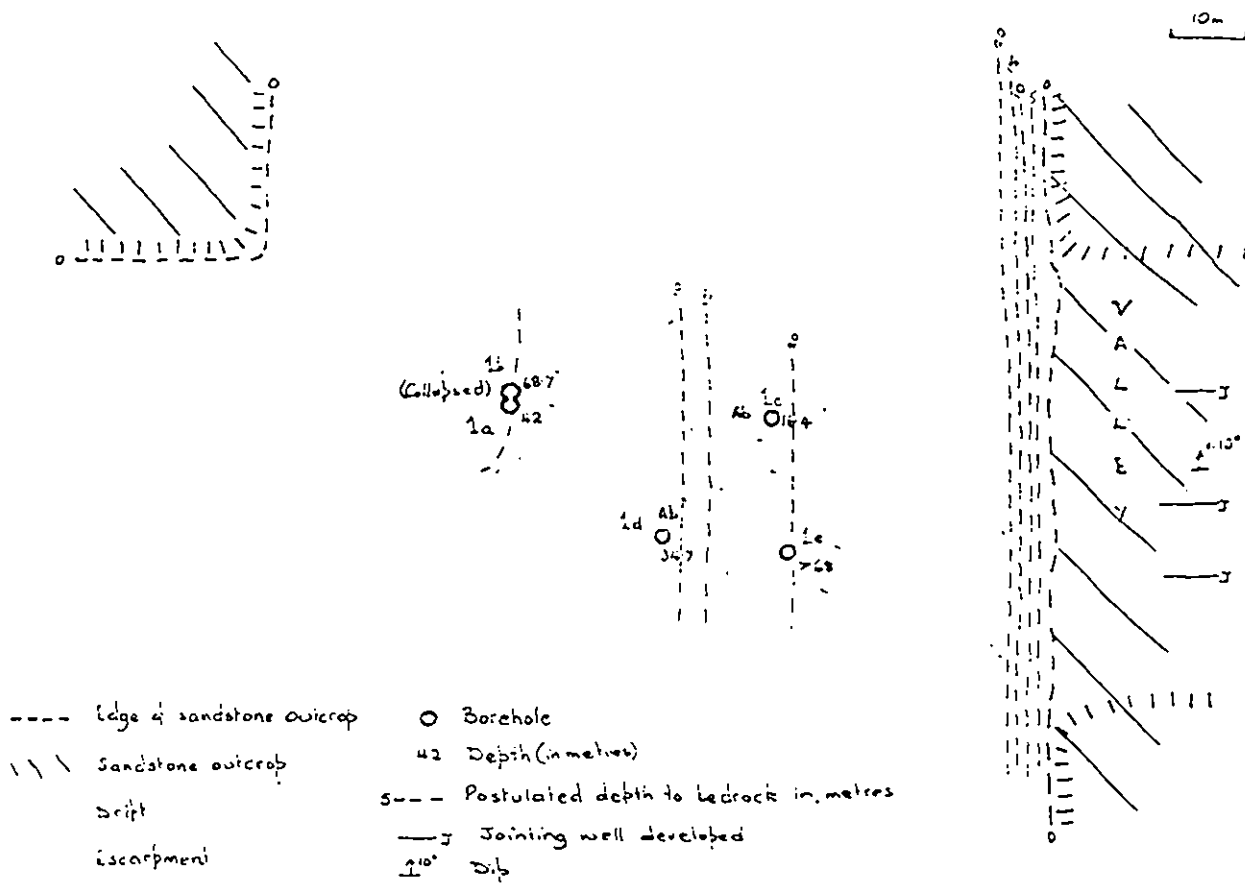 10m
O
O
O
1b
(Collapsed) 68.7
42
1a
20
1c
Ab
1d
34.7
1e
>68
V
A
L
L
E
Y
J
J
J
10°
O
---- Edge of sandstone outcrop
\ \ \ Sandstone outcrop
Drift
Escarpment
O Borehole
42 Depth (in metres)
5--- Postulated depth to bedrock in metres
—J Jointing well developed
10° Dip